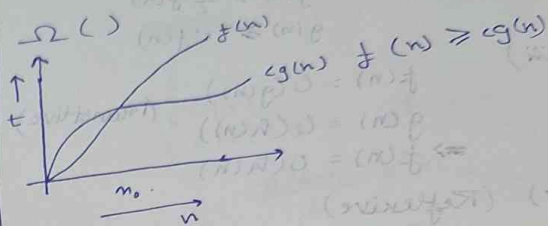 Ω ( )
f(n)
cg(n) f(n) ≥ cg(n)
t
n₀.
n